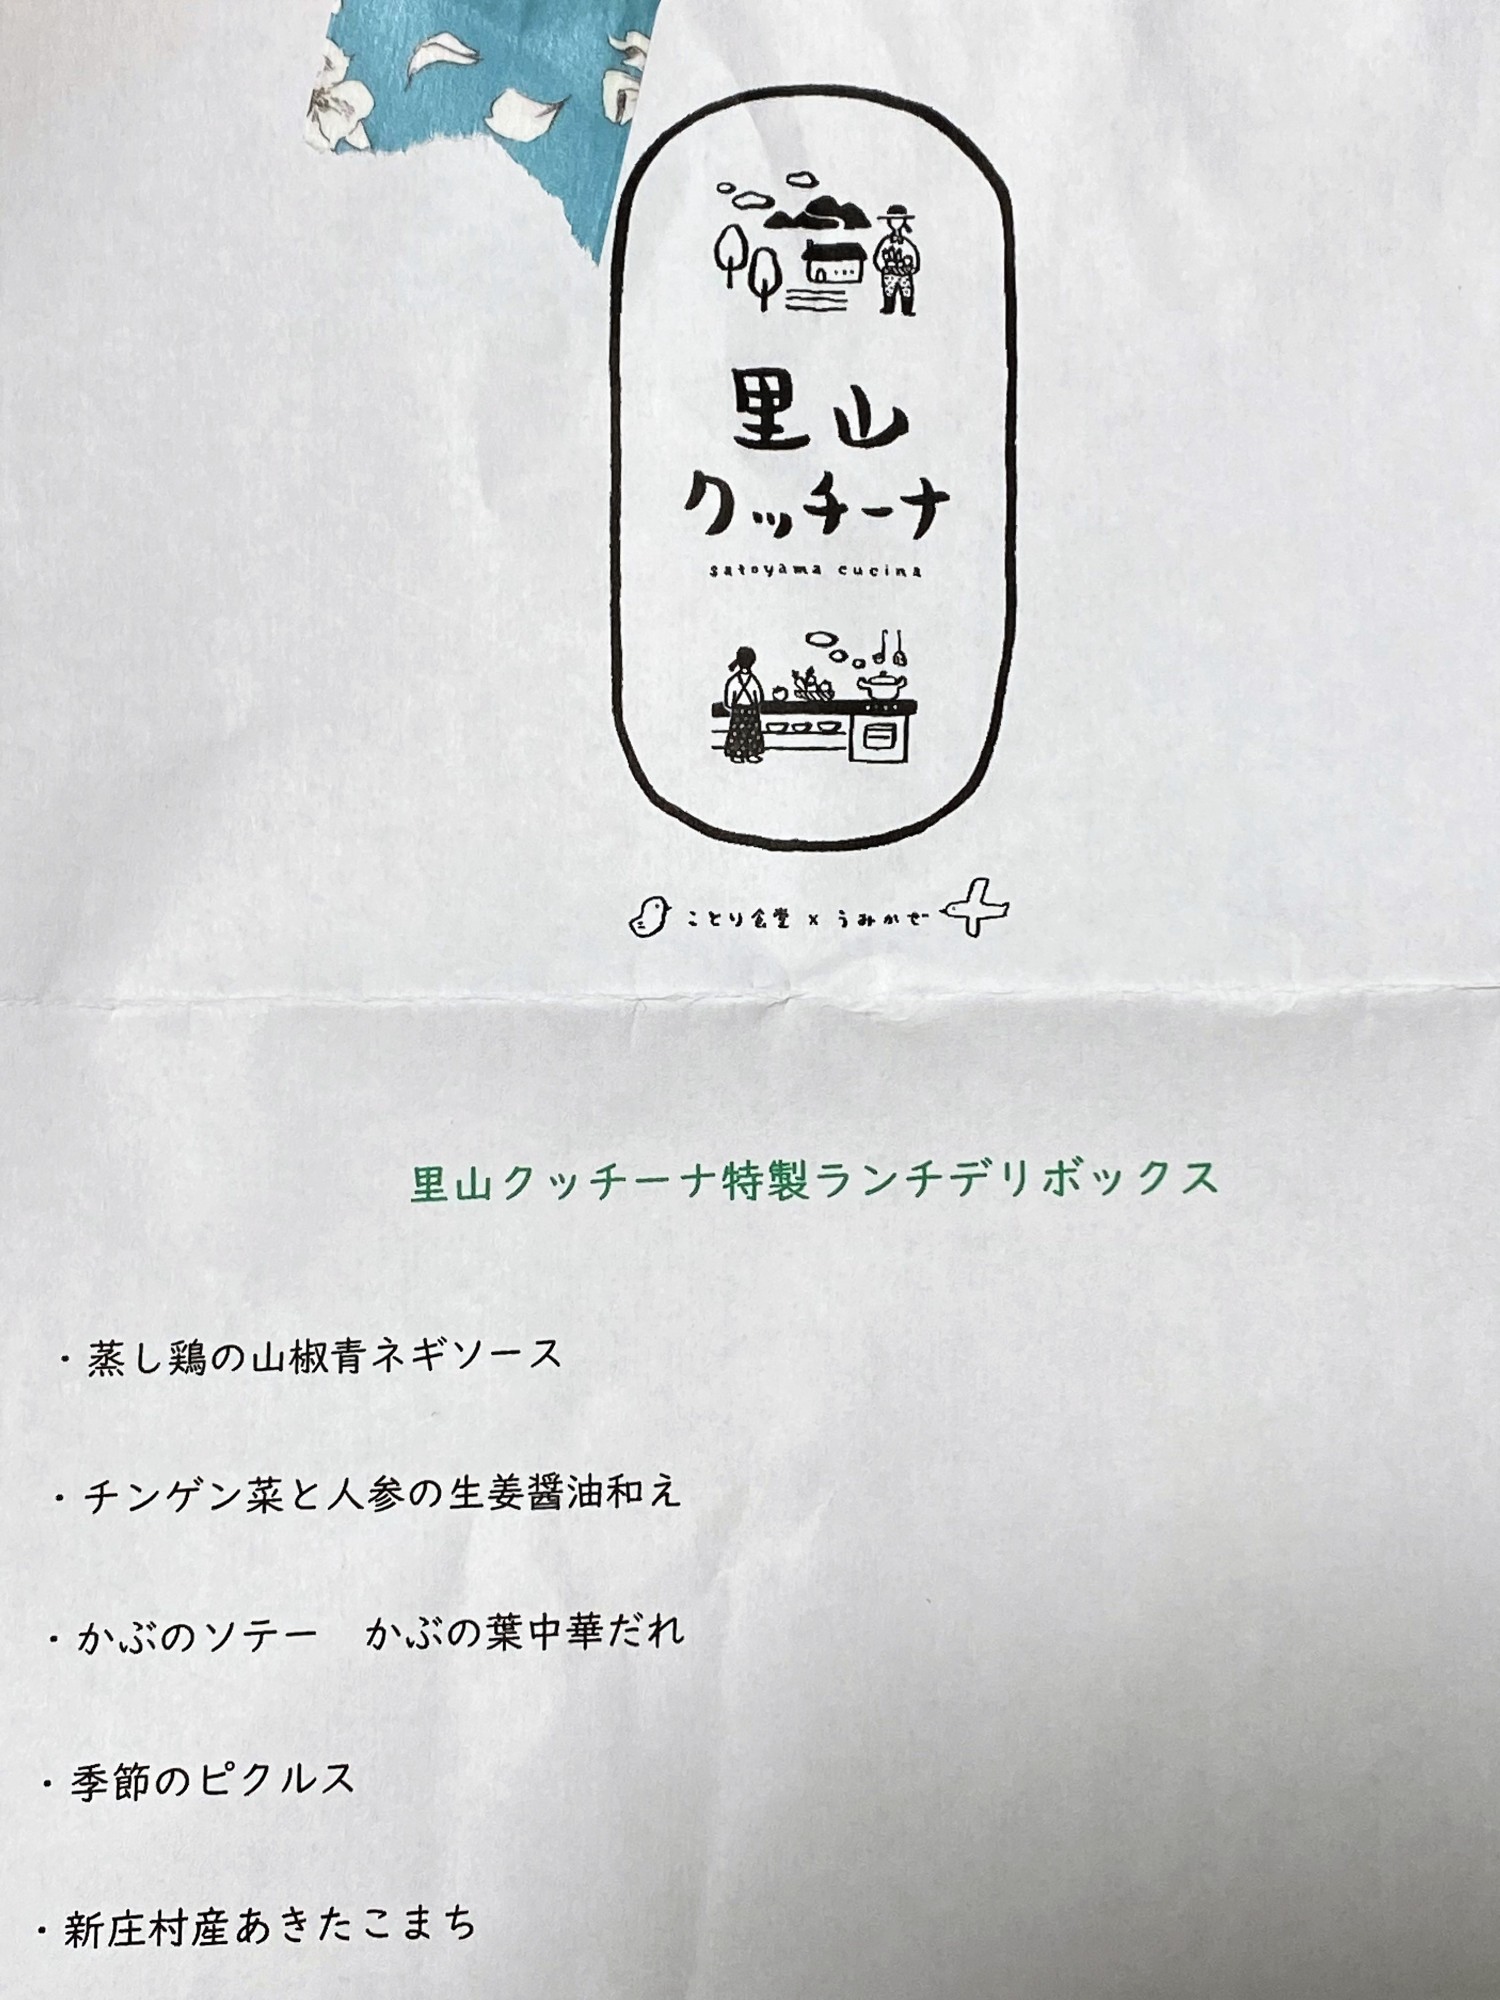 里山
クッチーナ
satoyama cucina
ことり食堂 x うみかぜ
里山クッチーナ特製ランチデリボックス
・蒸し鶏の山椒青ネギソース
・チンゲン菜と人参の生姜醤油和え
・かぶのソテー　かぶの葉中華だれ
・季節のピクルス
・新庄村産あきたこまち